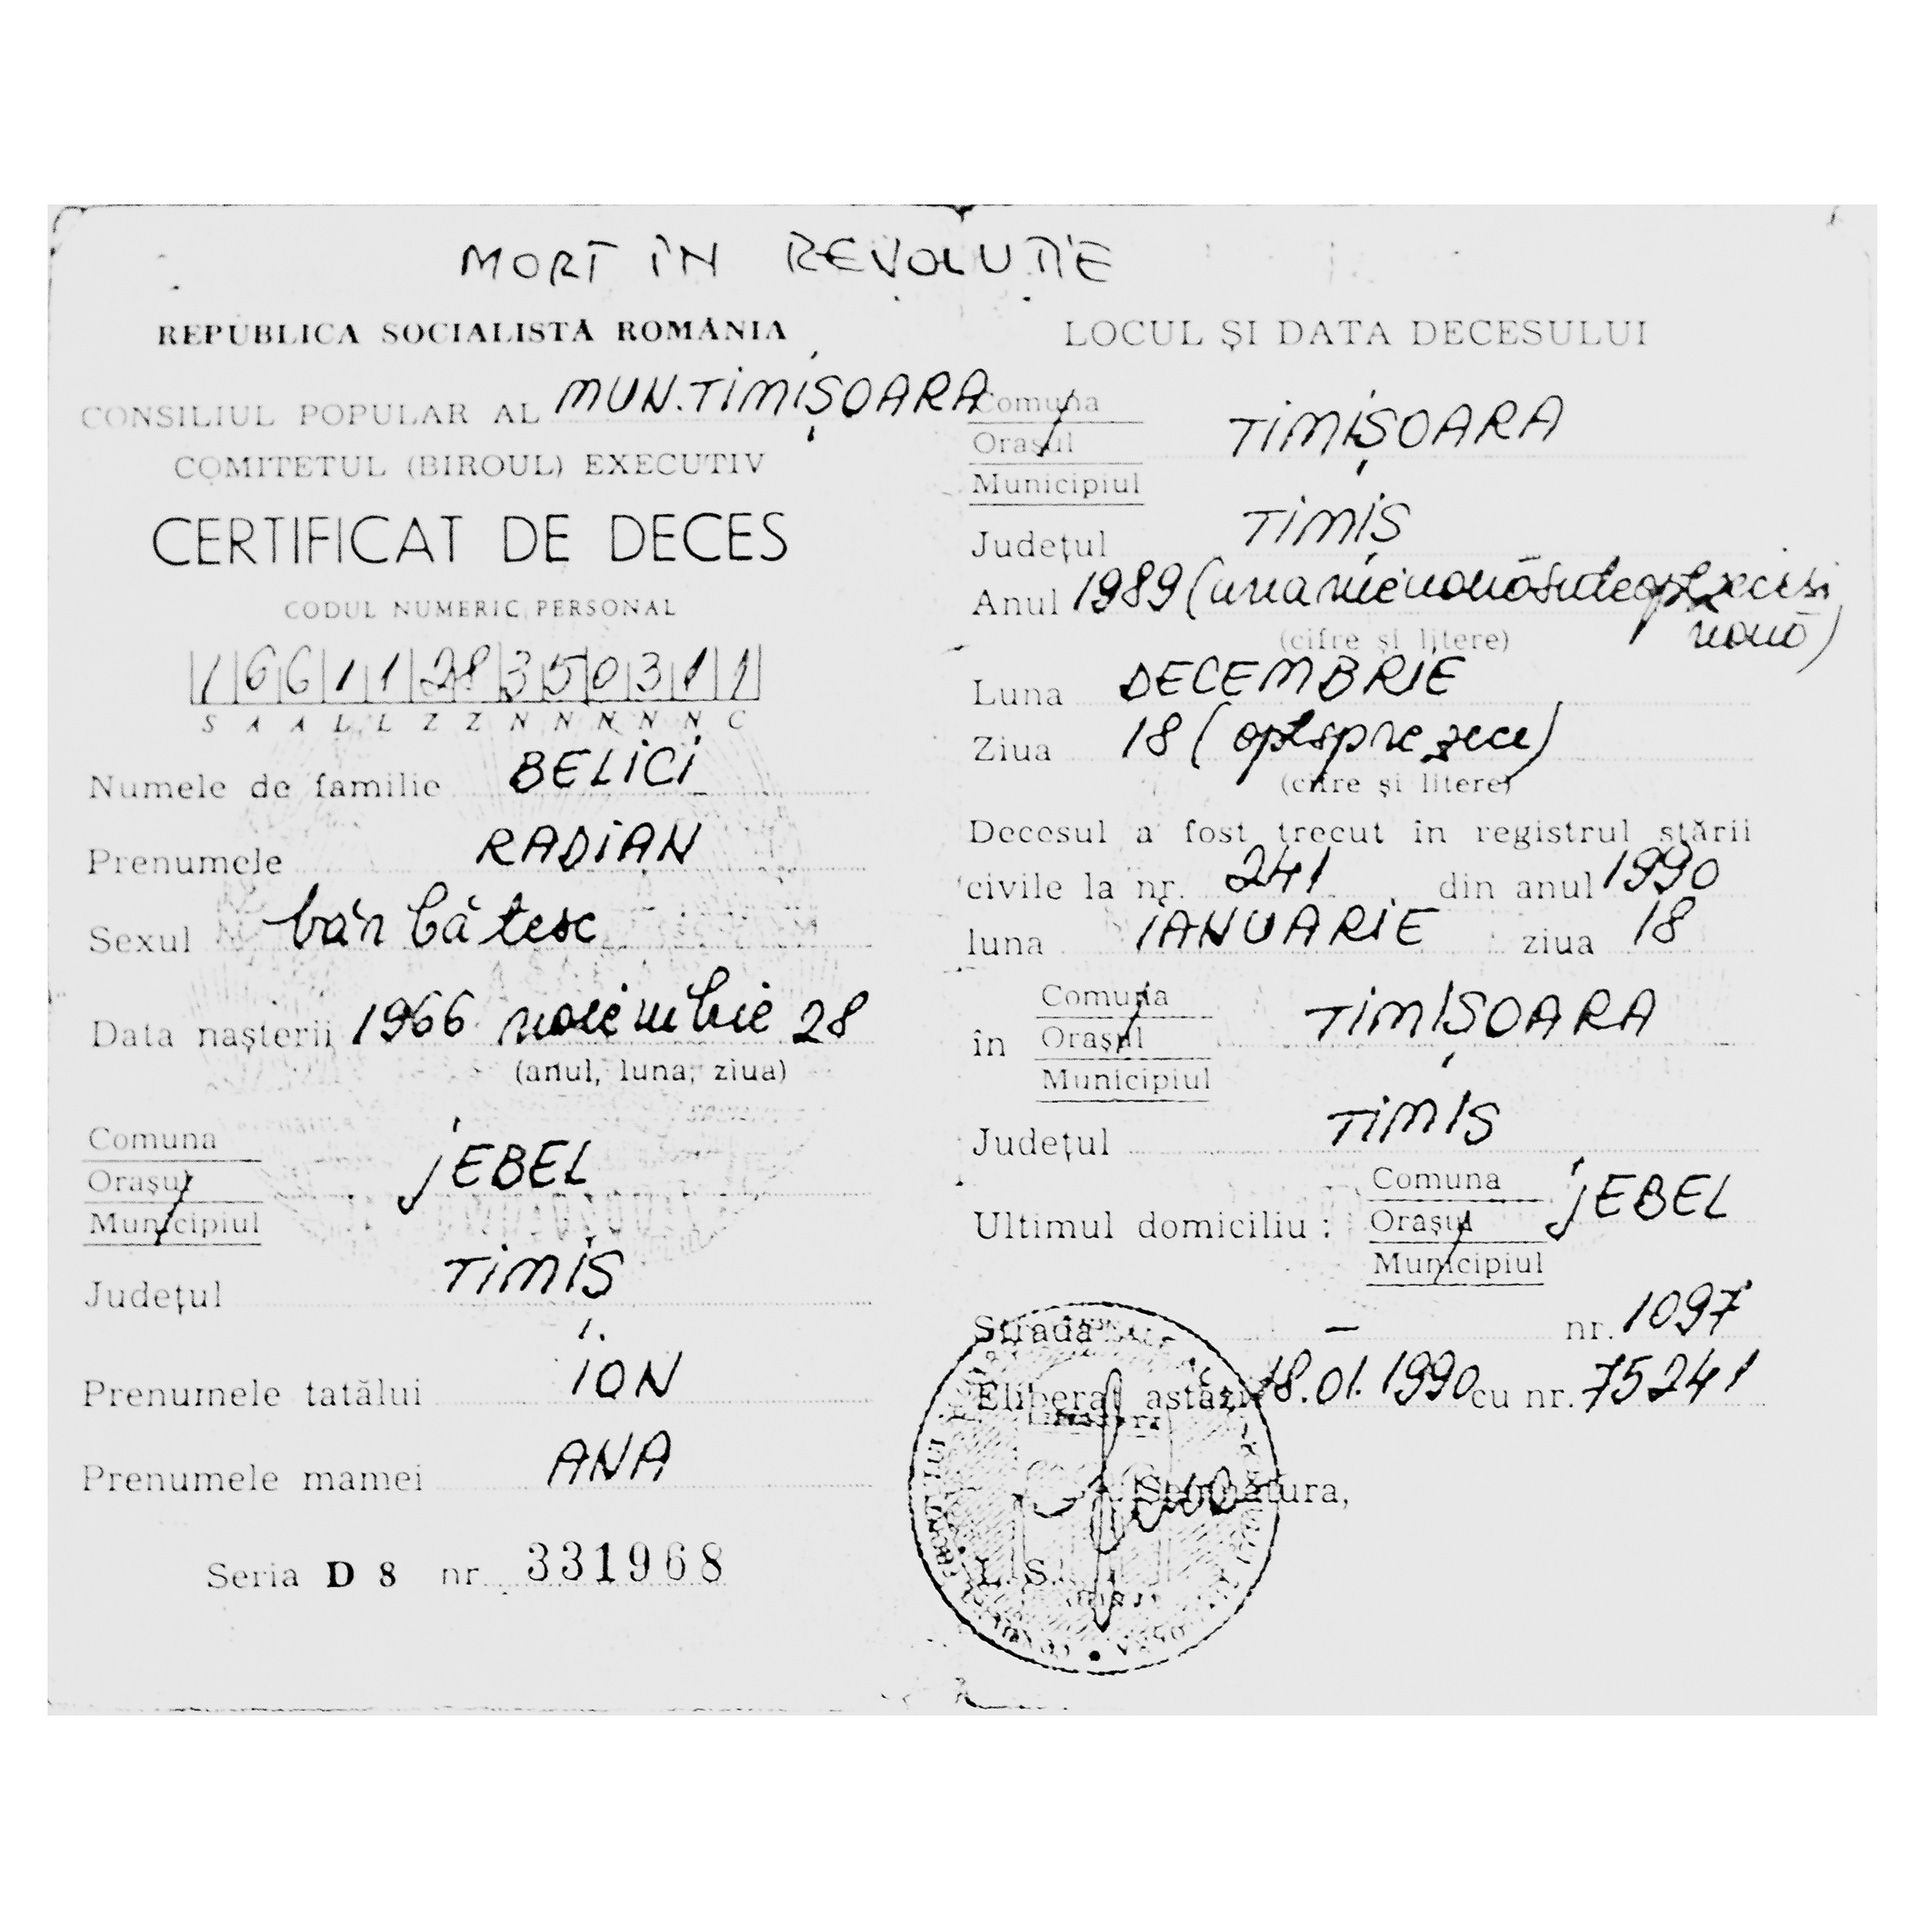 MORT ÎN REVOLUȚIE
REPUBLICA SOCIALISTĂ ROMÂNIA
CONSILIUL POPULAR AL MUN. TIMIȘOARA
COMITETUL (BIROUL) EXECUTIV
CERTIFICAT DE DECES
CODUL NUMERIC PERSONAL
1 6 6 1 1 2 8 3 5 0 3 1 1
S A A L L Z Z N N N N N C
Numele de familie BELICI
Prenumele RADIAN
Sexul bărbătesc
Data nașterii 1966 noiembrie 28
(anul, luna, ziua)
Comuna
Orașul
Municipiul
JEBEL
Județul TIMIȘ
Prenumele tatălui ION
Prenumele mamei ANA
Seria D 8 nr. 331968
LOCUL ȘI DATA DECESULUI
Comuna
Orașul
Municipiul
TIMIȘOARA
Județul TIMIȘ
Anul 1989 (una mie nouă sute optzeci și
nouă)
(cifre și litere)
Luna DECEMBRIE
Ziua 18 (optsprezece)
(cifre și litere)
Decesul a fost trecut în registrul stării
civile la nr. 241 din anul 1990
luna IANUARIE ziua 18
în
Comuna
Orașul
Municipiul
TIMIȘOARA
Județul TIMIȘ
Ultimul domiciliu :
Comuna
Orașul
Municipiul
JEBEL
Strada — nr. 1097
Eliberat astăzi 18.01.1990 cu nr. 75241
Semnătura,
L. S.